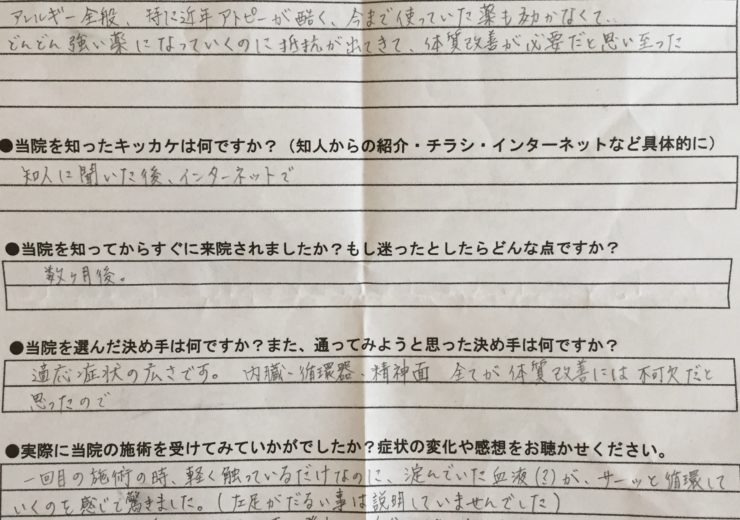 アレルギー全般、特に近年アトピーが酷く、今まで使っていた薬も効かなくて…
どんどん強い薬になっていくのに抵抗が出てきて、体質改善が必要だと思い至った
●当院を知ったキッカケは何ですか？（知人からの紹介・チラシ・インターネットなど具体的に）
知人に聞いた後、インターネットで
●当院を知ってからすぐに来院されましたか？もし迷ったとしたらどんな点ですか？
数ヶ月後。
●当院を選んだ決め手は何ですか？また、通ってみようと思った決め手は何ですか？
適応症状の広さです。 内臓・循環器・精神面 全てが体質改善には不可欠だと
思ったので
●実際に当院の施術を受けてみていかがでしたか？症状の変化や感想をお聴かせください。
一回目の施術の時、軽く触っているだけなのに、淀んでいた血液(?)が、サーッと循環して
いくのを感じて驚きました。(左足がだるい事は説明していませんでした)